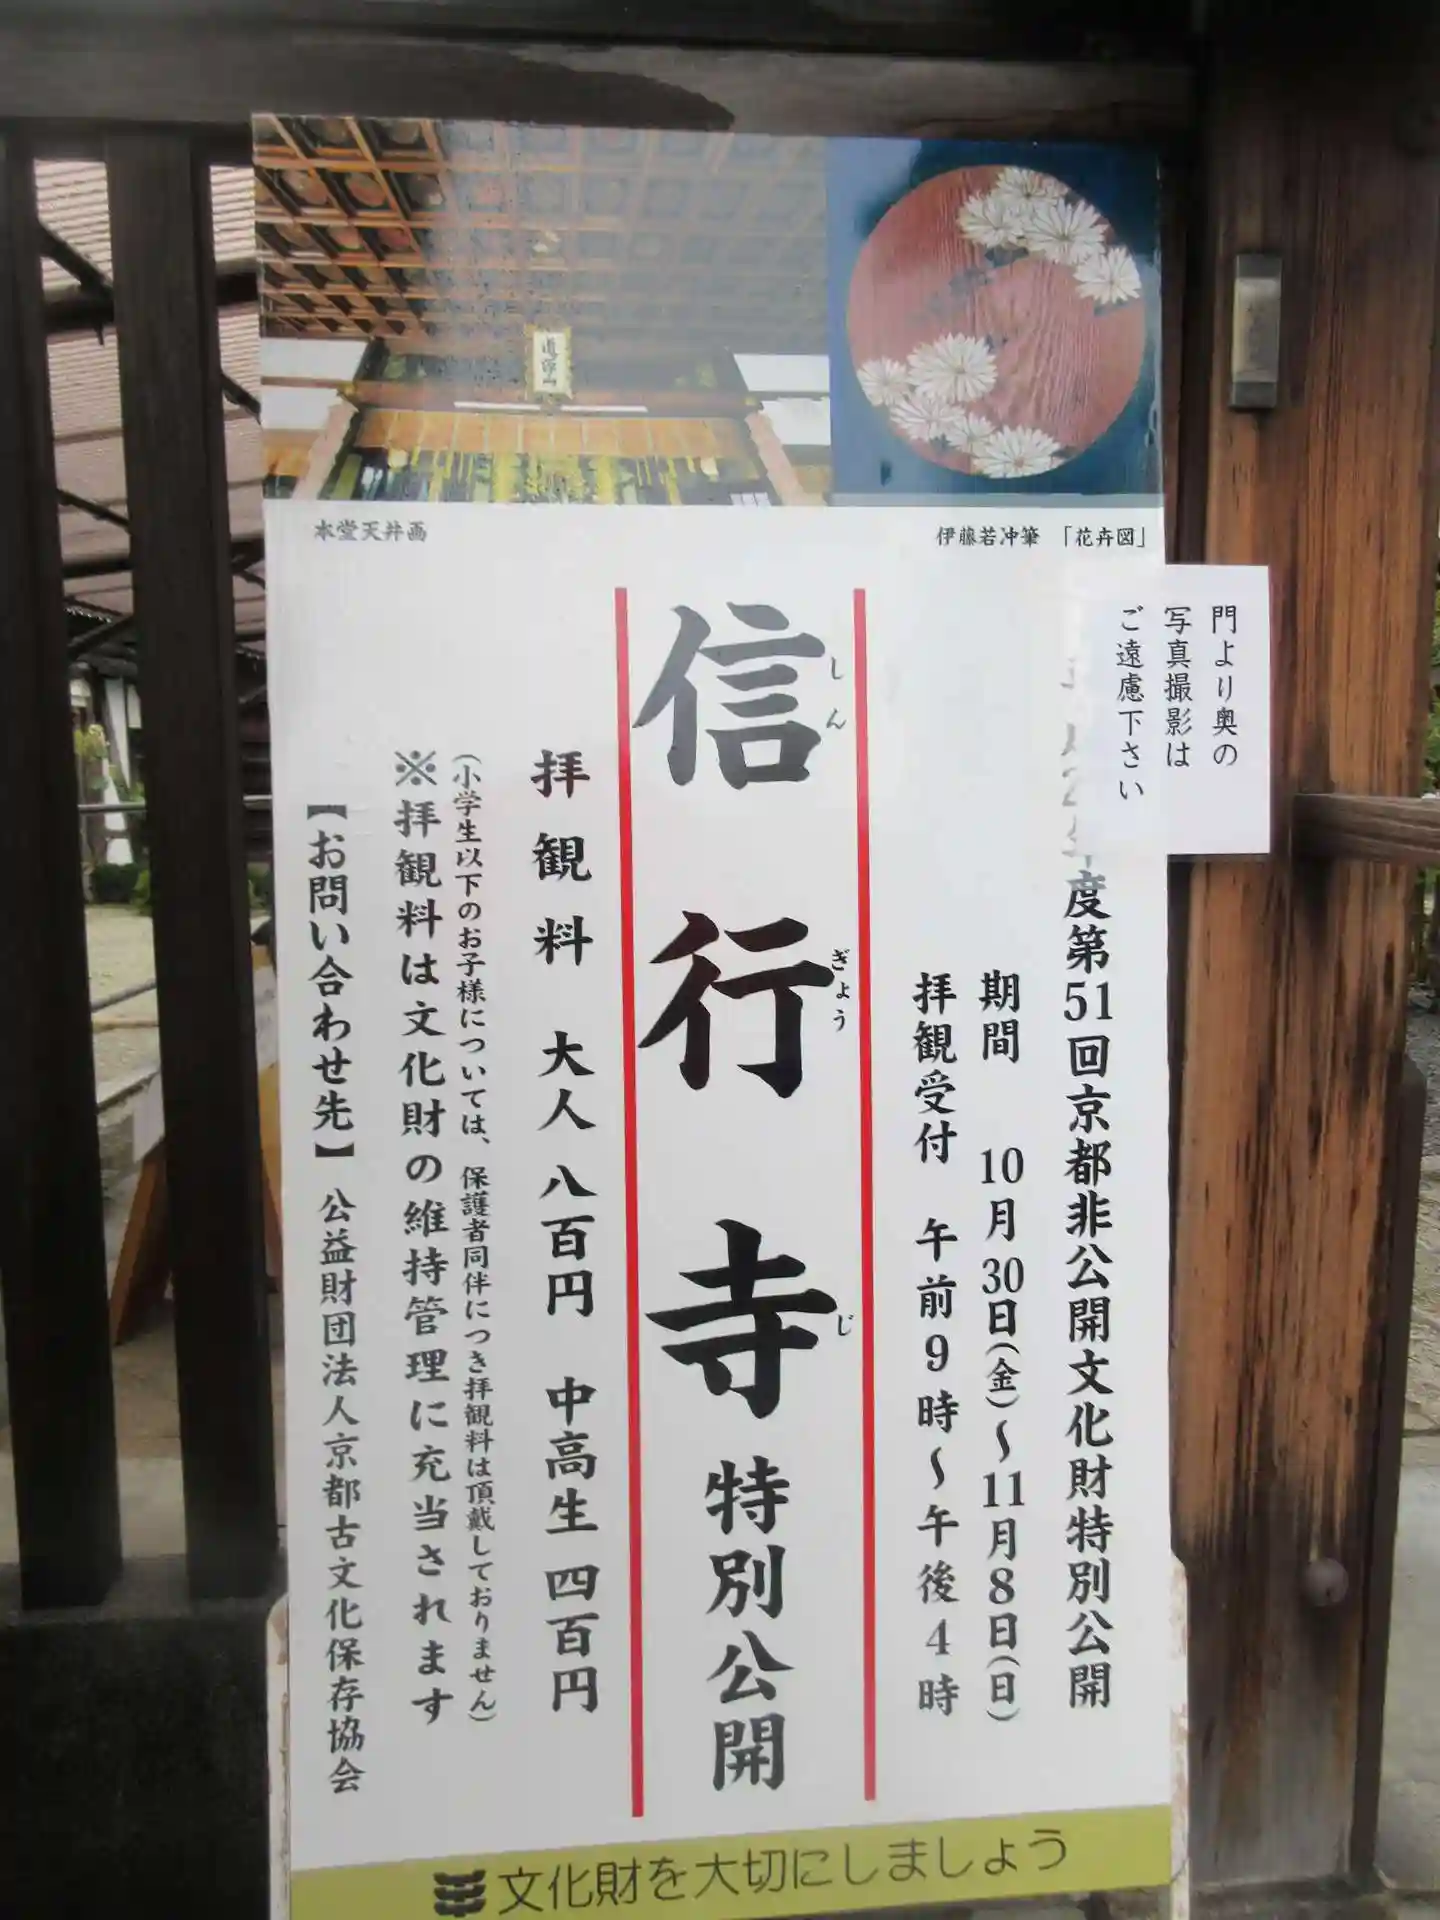 本堂天井画
伊藤若冲筆 「花卉図」
門より奥の
写真撮影は
ご遠慮下さい
年度第51回京都非公開文化財特別公開
期間 10月30日(金)~11月8日(日)
拝観受付 午前9時~午後4時
信行寺 特別公開
しん ぎょう じ
拝観料 大人 八百円 中高生 四百円
(小学生以下のお子様については、保護者同伴につき拝観料は頂戴しておりません)
※拝観料は文化財の維持管理に充当されます
【お問い合わせ先】 公益財団法人京都古文化保存協会
文化財を大切にしましょう